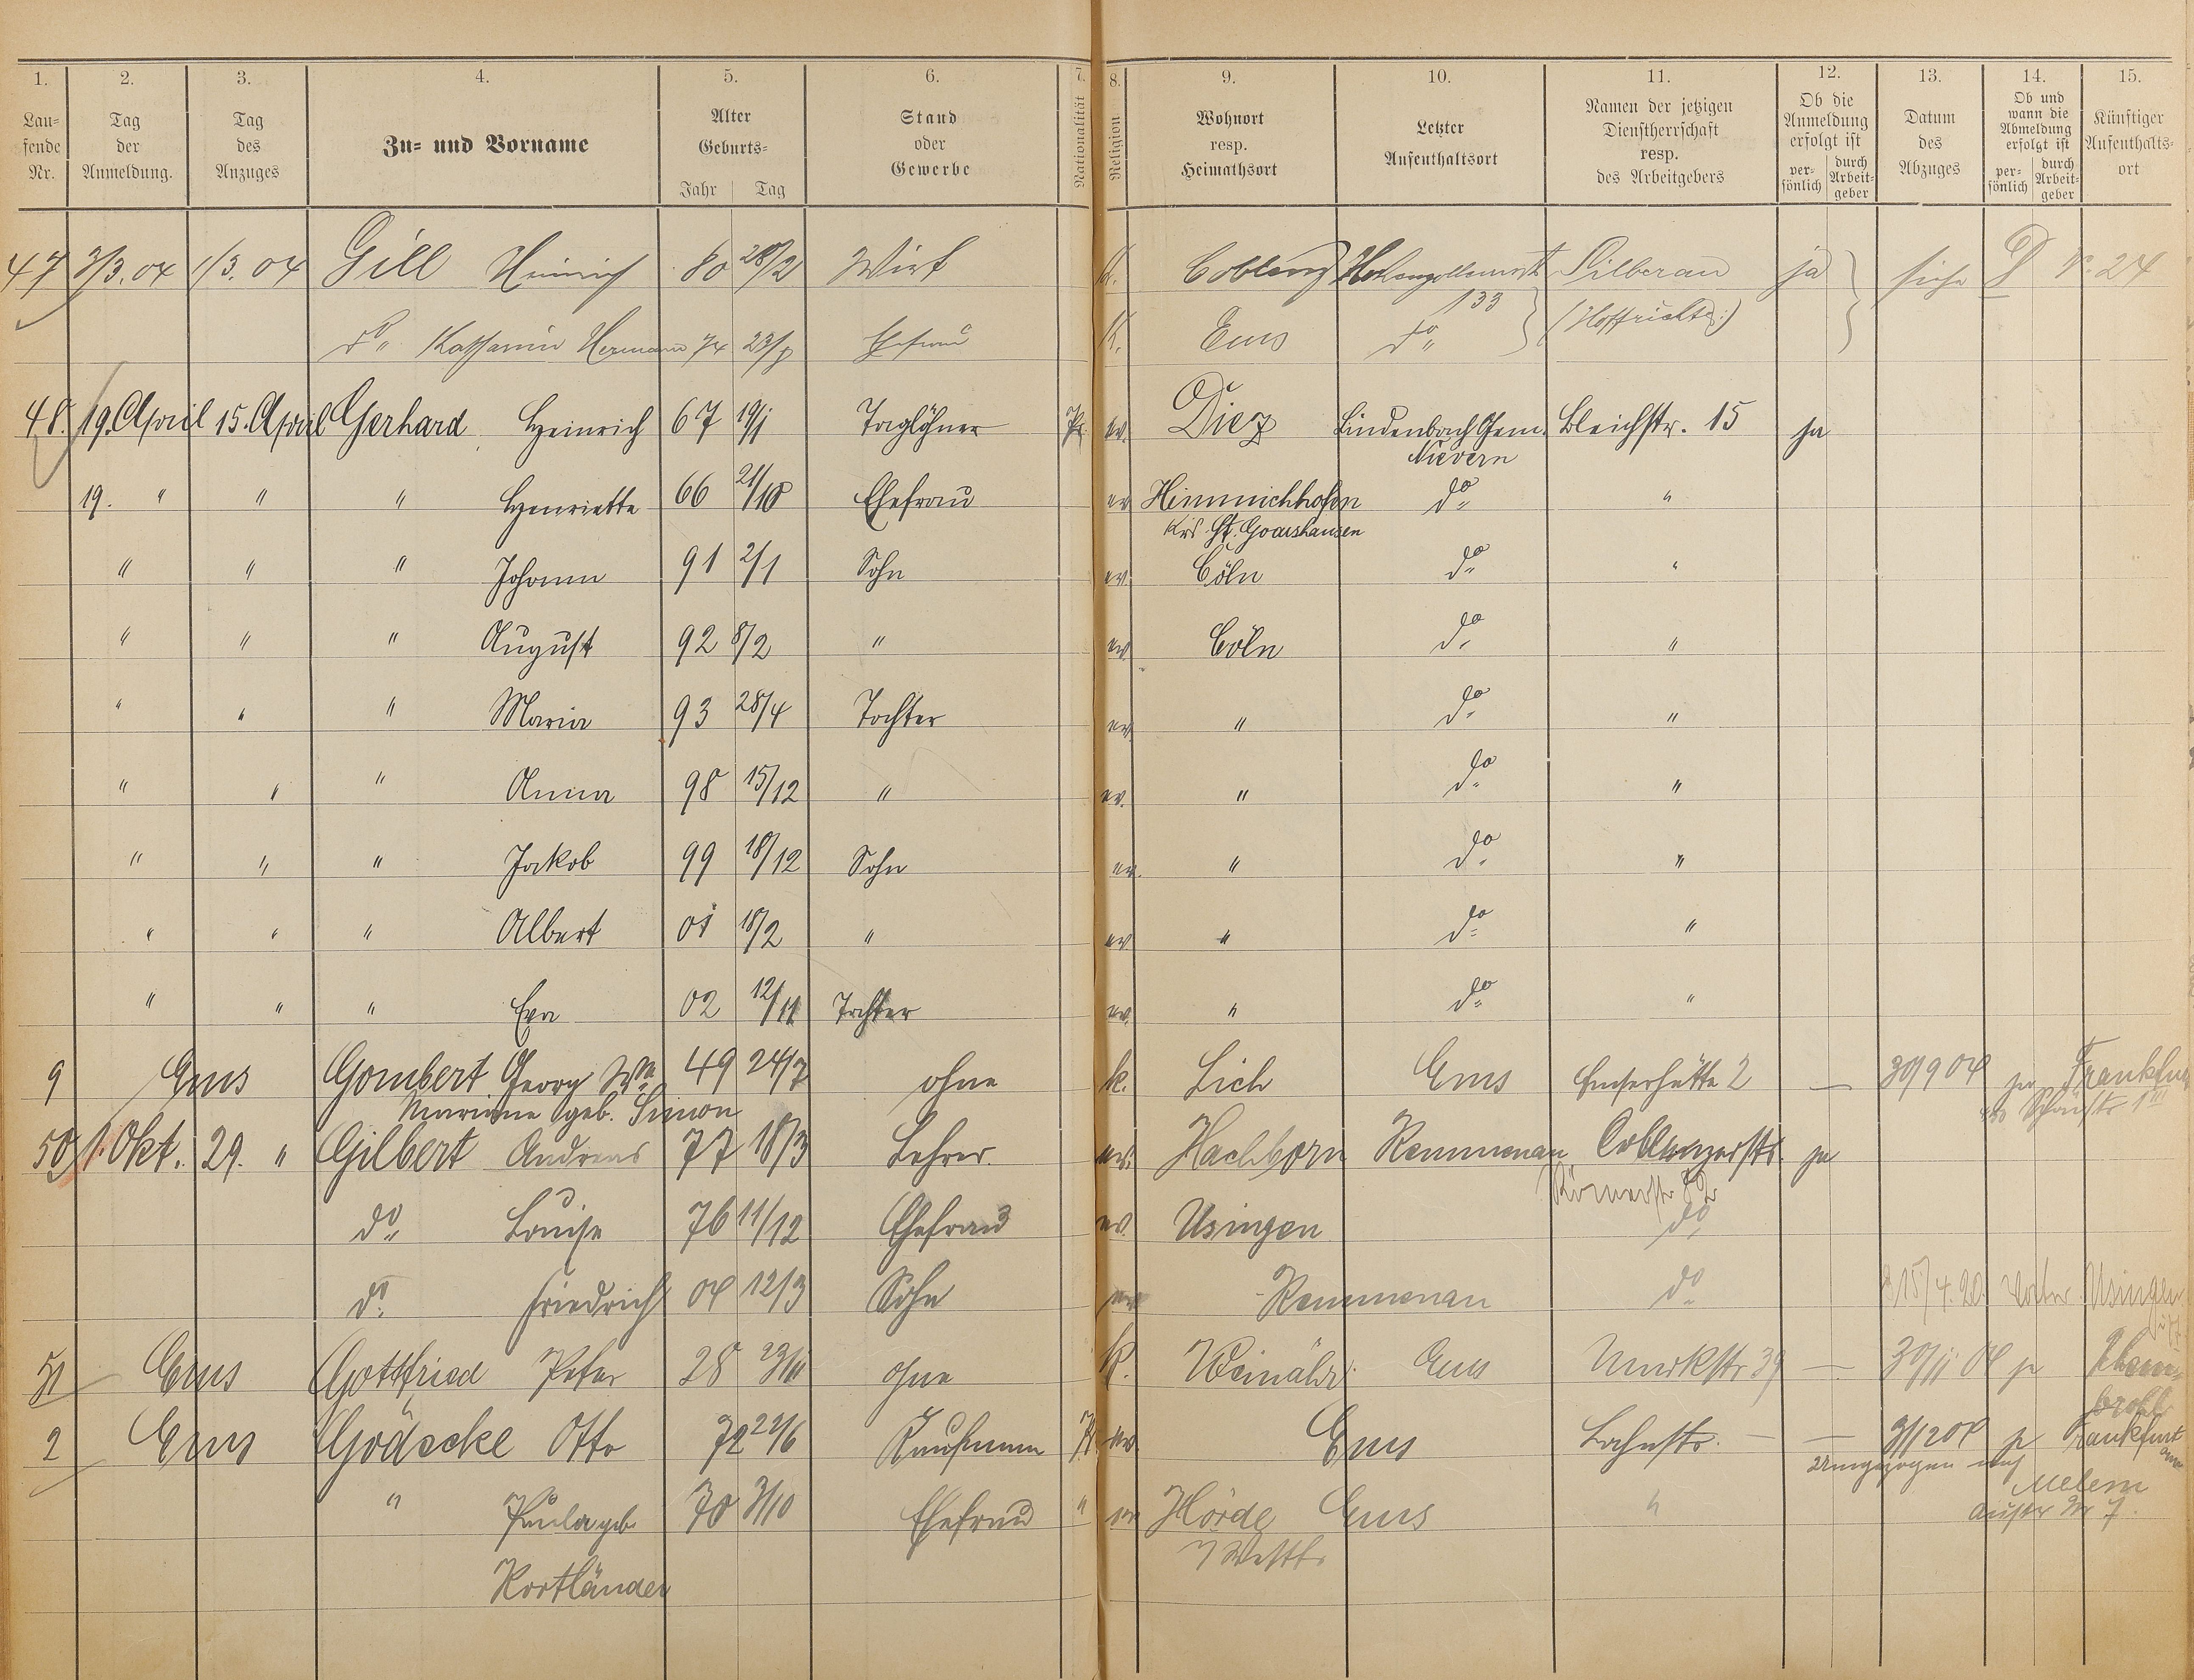 1. 2. 3. 4. 5. 6. 7. 8. 9. 10. 11. 12. 13. 14. 15.
Lau=
fende
Nr.
Tag
der
Anmeldung.
Tag
des
Anzuges
Zu= und Vorname
Alter
Geburts=
Jahr Tag
Stand
oder
Gewerbe
Nationalität
Religion
Wohnort
resp.
Heimathsort
Letzter
Aufenthaltsort
Namen der jetzigen
Dienstherrschaft
resp.
des Arbeitgebers
Ob die
Anmeldung
erfolgt ist
per=
sönlich
durch
Arbeit=
geber
Datum
des
Abzuges
Ob und
wann die
Abmeldung
erfolgt ist
per=
sönlich
durch
Arbeit=
geber
Künftiger
Aufenthalts=
ort
47 3/3.04 1/3.04 Gill Heinrich 80 28/2 Wirt K. Coblenz Silberau ja siehe 24
133
do Hermann 74 Ehefrau K. Ems do (Hoffrichter)
48. 19. April 15. April Gerhard Heinrich 67 19/1 Taglöhner Pr ev. Diez Lindenbach Gem. Bleichstr. 15 ja
Nievern
19. " " " Henriette 66 21/10 Ehefrau ev Himmichhofen do "
Krs St. Goarshausen
" " " Johann 91 2/1 Sohn ev. Cöln do "
" " " August 92 8/2 " ev Cöln do "
" " " Maria 93 28/4 Tochter ev. " do "
" " " Anna 98 15/12 " ev. " do "
" " " Jakob 99 18/12 Sohn ev. " do "
" " " Albert 01 18/2 " ev " do "
" " " Eva 02 12/11 Tochter ev. " do "
9 Ems Gombert Georg Ww 49 24/7 ohne k. Lich Ems Emserhütte 2 — 30/9 04 ja Frankfurt
Marianne geb. Simon
50 1. Okt. 29. " Gilbert Andreas 77 18/3 Lehrer. ev. Hachborn Kemmenau Coblenzerstr. ja
Römerstr 82
do Louise 76 11/12 Ehefrau ev. Usingen do
do Friedrich 04 12/3 Sohn ev Kemmenau do 15/4.20. Usingen
51 Ems Gottfried Peter 28 ohne K. Weinähr Ems 39 — 30/11 04 p Rhein=
brohl
2 Ems Gödecke Otto 72 Kaufmann Pr ev Ems Lahnstr. — — p Frankfurt
umgezogen nach
Melem
" Paula geb. 70 3/10 Ehefrau " ev Hörde Ems "
Kortländer